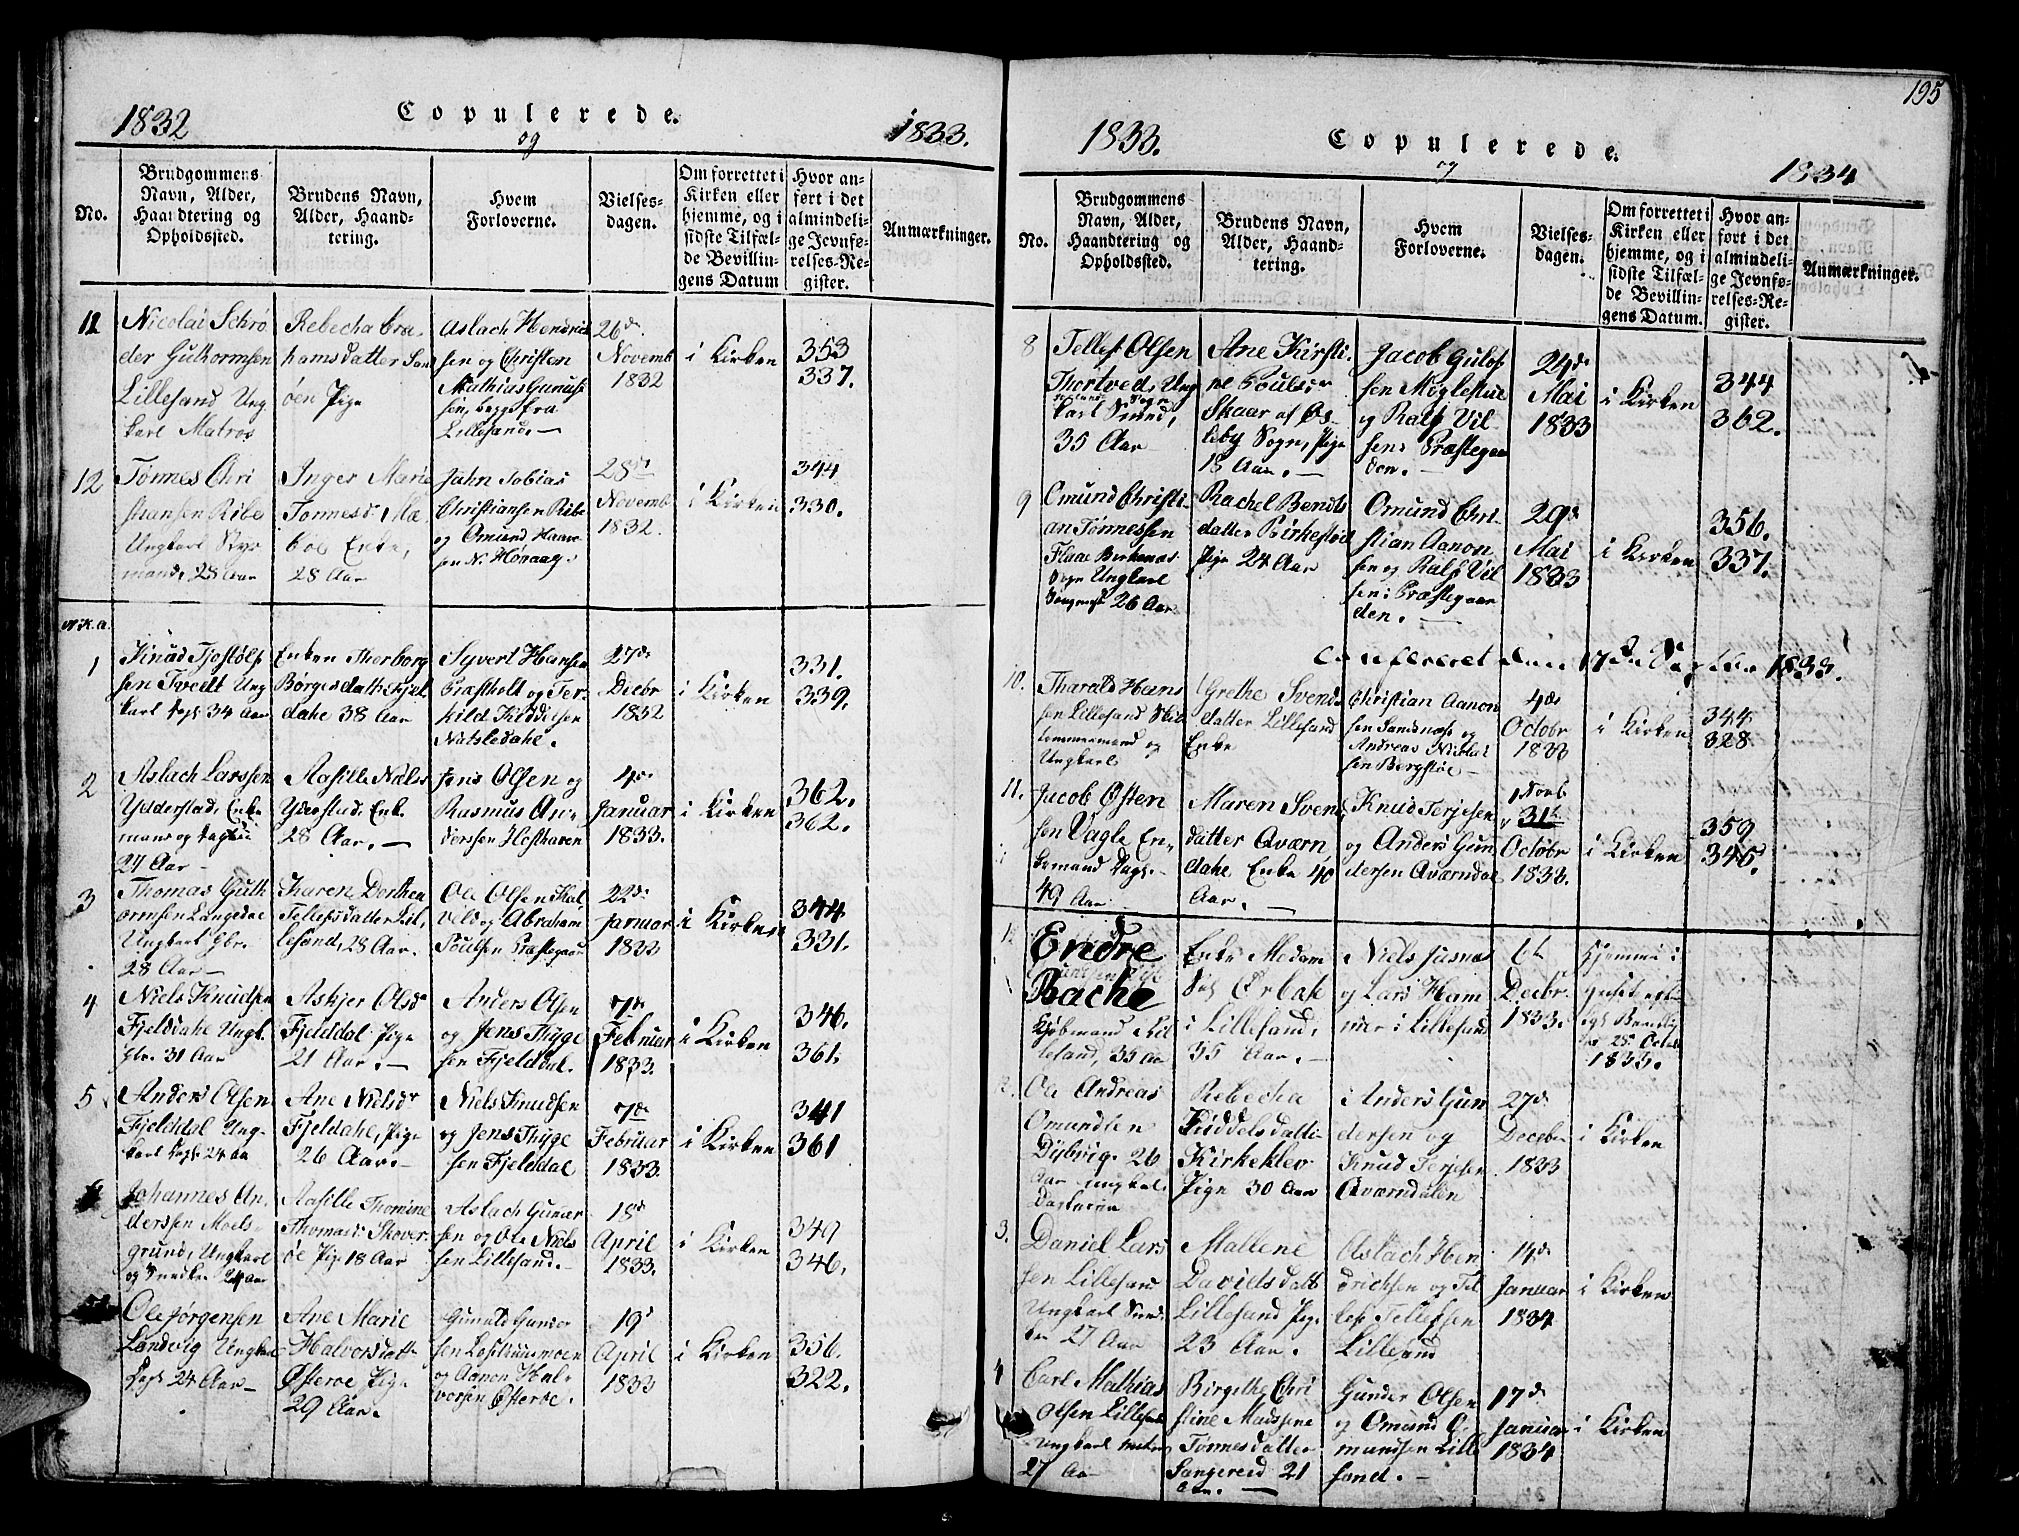 195
1832
Copulerede.
og
1833.
No.
Brudgommens
Navn, Alder,
Haandtering og
Opholdssted.
Brudens Navn,
Alder, Haand-
tering.
Hvem
Forloverne.
Vielses-
dagen.
Om forrettet i
Kirken eller
hjemme, og i
sidste Tilfæl-
de Bevillin-
gens Datum
Hvor an-
ført i det
almindeli-
ge Jevnfø-
relses-Re-
gister.
Anmærkninger.
11
Nicolai Schrø
der Guthormsen
Lillesand Ung
karl Matros
Rebecha Bra
hamsdatter San
öen Pige
Aslach Hendrich
sen og Christen
Mathias Gunus
sen, begge fra
Lillesand. —
26de
Novemb
1832
i Kirken
353
337.
12
Tønnes Chri
stiansen Ribe
Ungkarl Styr
mand, 28 Aar
Inger Marie
Tonnesdr
Enke,
28 Aar
Jahn Tobias
Christiansen Ribe
og Omund Haave
sen N. Høvaag.
28de
Novemb
1832.
i Kirken
344
330.
1
Knud Tjostølf
sen Tvedt Ung
karl 34 Aar
Enken Thorborg
Børgesdatt Fjel
dahl 38 Aar
Syvert Hansen
Præstholt og Ter
kild Kiddelsen
Natsledahl.
27de
Decbr
1832
i Kirken
331.
339.
2
Aslach Larssen
Ydderstad, Enke
mand og
27 Aar —
Aasille Niels
Ydrestad, Enke
28 Aar. —
Jens Olsen og
Rasmus An-
derssen Hosthaven
4de
Januar
1833.
i Kirken
362.
362.
3
Thomas Guth
ormsen Langedal
Ungkarl Gbr.
28 Aar —
Karen Dorthea
Tellefsdatter Lil,
lesand, 28 Aar.
Ole Olsen Kal
vild og Abraham
Poulsen Præstegaar
22de
Januar
1833
i Kirken
344
331.
4
Niels Knudsen
Fjeldahl Ungk.
Gbr. 31 Aar
Askjer Olsdr
Fjeldal Pige
21 Aar. —
Anders Olsen
og Jens Thyge
sen Fjeldal.
7de
Februar
1833.
i Kirken
346.
361.
5
Anders Olsen
Fjeldal Ung-
karl 24 Aar
Ane Nielsdr
Fjeldahl, Pige
26 Aar. —
Niels Knudsen
og Jens Thyge
sen Fjeldal
7de
Februar
1833.
i Kirken
341
361
6
Johannes An
derssen Moels-
grund, Ungkarl
og Snedker 24 Aar
Aasille Thomine
Thomasdr Skover
øe Pige 18 Aar
Aslach Gunar
sen og Ole Niels
sen Lillesand. —
18de
April
1833.
i Kirken
349
346.
Ole Jørgensen
Landvig Ungkarl
24 Aar —
Ane Marie
Halvorsdatt
Østerøe Pige
29 Aar.
Gunuld Gunder
sen Lofthuusmoen
og Aanon Hal-
vorsen Østerøe.
19de
April
1833
i Kirken
356.
322.
1833.
Copulerede.
og
1834
No.
Brudgommens
Navn, Alder,
Haandtering og
Opholdssted.
Brudens Navn,
Alder, Haand-
tering.
Hvem
Forloverne.
Vielses-
dagen.
Om forrettet i
Kirken eller
hjemme, og i
sidste Tilfæl-
de Bevillin-
gens Datum.
Hvor an-
ført i det
almindeli-
ge Jevnfø-
relses-Re-
gister.
Anmærkninger.
8
Tellef Olsen
Thortved, Ung
karl
35 Aar
Ane Kirsti-
ne Poulsdr
Skaar af Os-
leby Sogn, Pige
18 Aar. —
Jacob Gulof
sen Miglestue
og Ralf Vil
sen: Præstegaar
den. —
24de
Mai
1833
i Kirken
344
362.
9
Omund Christi-
an Tønnessen
Flaae Birkenæs
Sogn Ungkarl
26 Aar
Rachel Bendts
datter Birkestøl
Pige 24 Aar
Omund Chri-
stian Aanon
sen og Ralf Vil
sen: Præstegaar
den. —
29de
Mai
1833
i Kirken
356.
337.
Confereret den 17de Septbr 1833.
10.
Tharald Hans
sen Lillesand Skib
tømmermand og
Ungkarl
Grethe Svends
datter Lillesand
Enke
Christian Aanon
sen Sandsnæs og
Andreas Nicolai
sen Bergstøl —
4de
Octobr
1833
i Kirken
344
328
11.
Jacob Østen
sen Vagle En,
kemand
49 Aar
Maren Svends
datter Aværn
dahl Enke 40
Aar. —
Knud Terjesen
og Anders Gun
dersen Aværndal
1 Novb
31te
Octobr
1833.
i Kirken
359
345.
1.
Endre
Bache
Kjøbmand Lil
lesand, 35 Aar
Enke Madam
Ørbak
i Lillesand,
35 Aar. —
Niels Jasnæs
og Lars Ham
mer i Lillesand
6te
Decbr.
1833.
Hjemme i
Huset
25 Octob
1833.
2.
Ole Andreas
Omundsen
Dybvig. 26
Aar Ungkarl
Rebecha
Kiddelsdatter
Kirkeklev
Pige 30 Aar
Anders Gun
dersen og
Knud Terjesen
Aværndalen
27de
Decbr
1833
i Kirken
3.
Daniel Lars
sen Lillesand
Ungkarl
27 Aar
Mallene
Davidsdatt
Lillesand Pige
23 Aar.
Aslach Hen
drichsen og Tel
lef Tellefsen
Lillesand
14de
Januar
1834
i Kirken
4
Carl Mathias
Olsen Lillesand
Ungkarl Matros
27 Aar
Birgithe Chri
stine Madssine
Tønnesdatter
Sangereid 21
Aar. —
Gunder Olsen
og Omund O.
mundsen Lille
sand. —
17de
Januar
1834
i Kirken